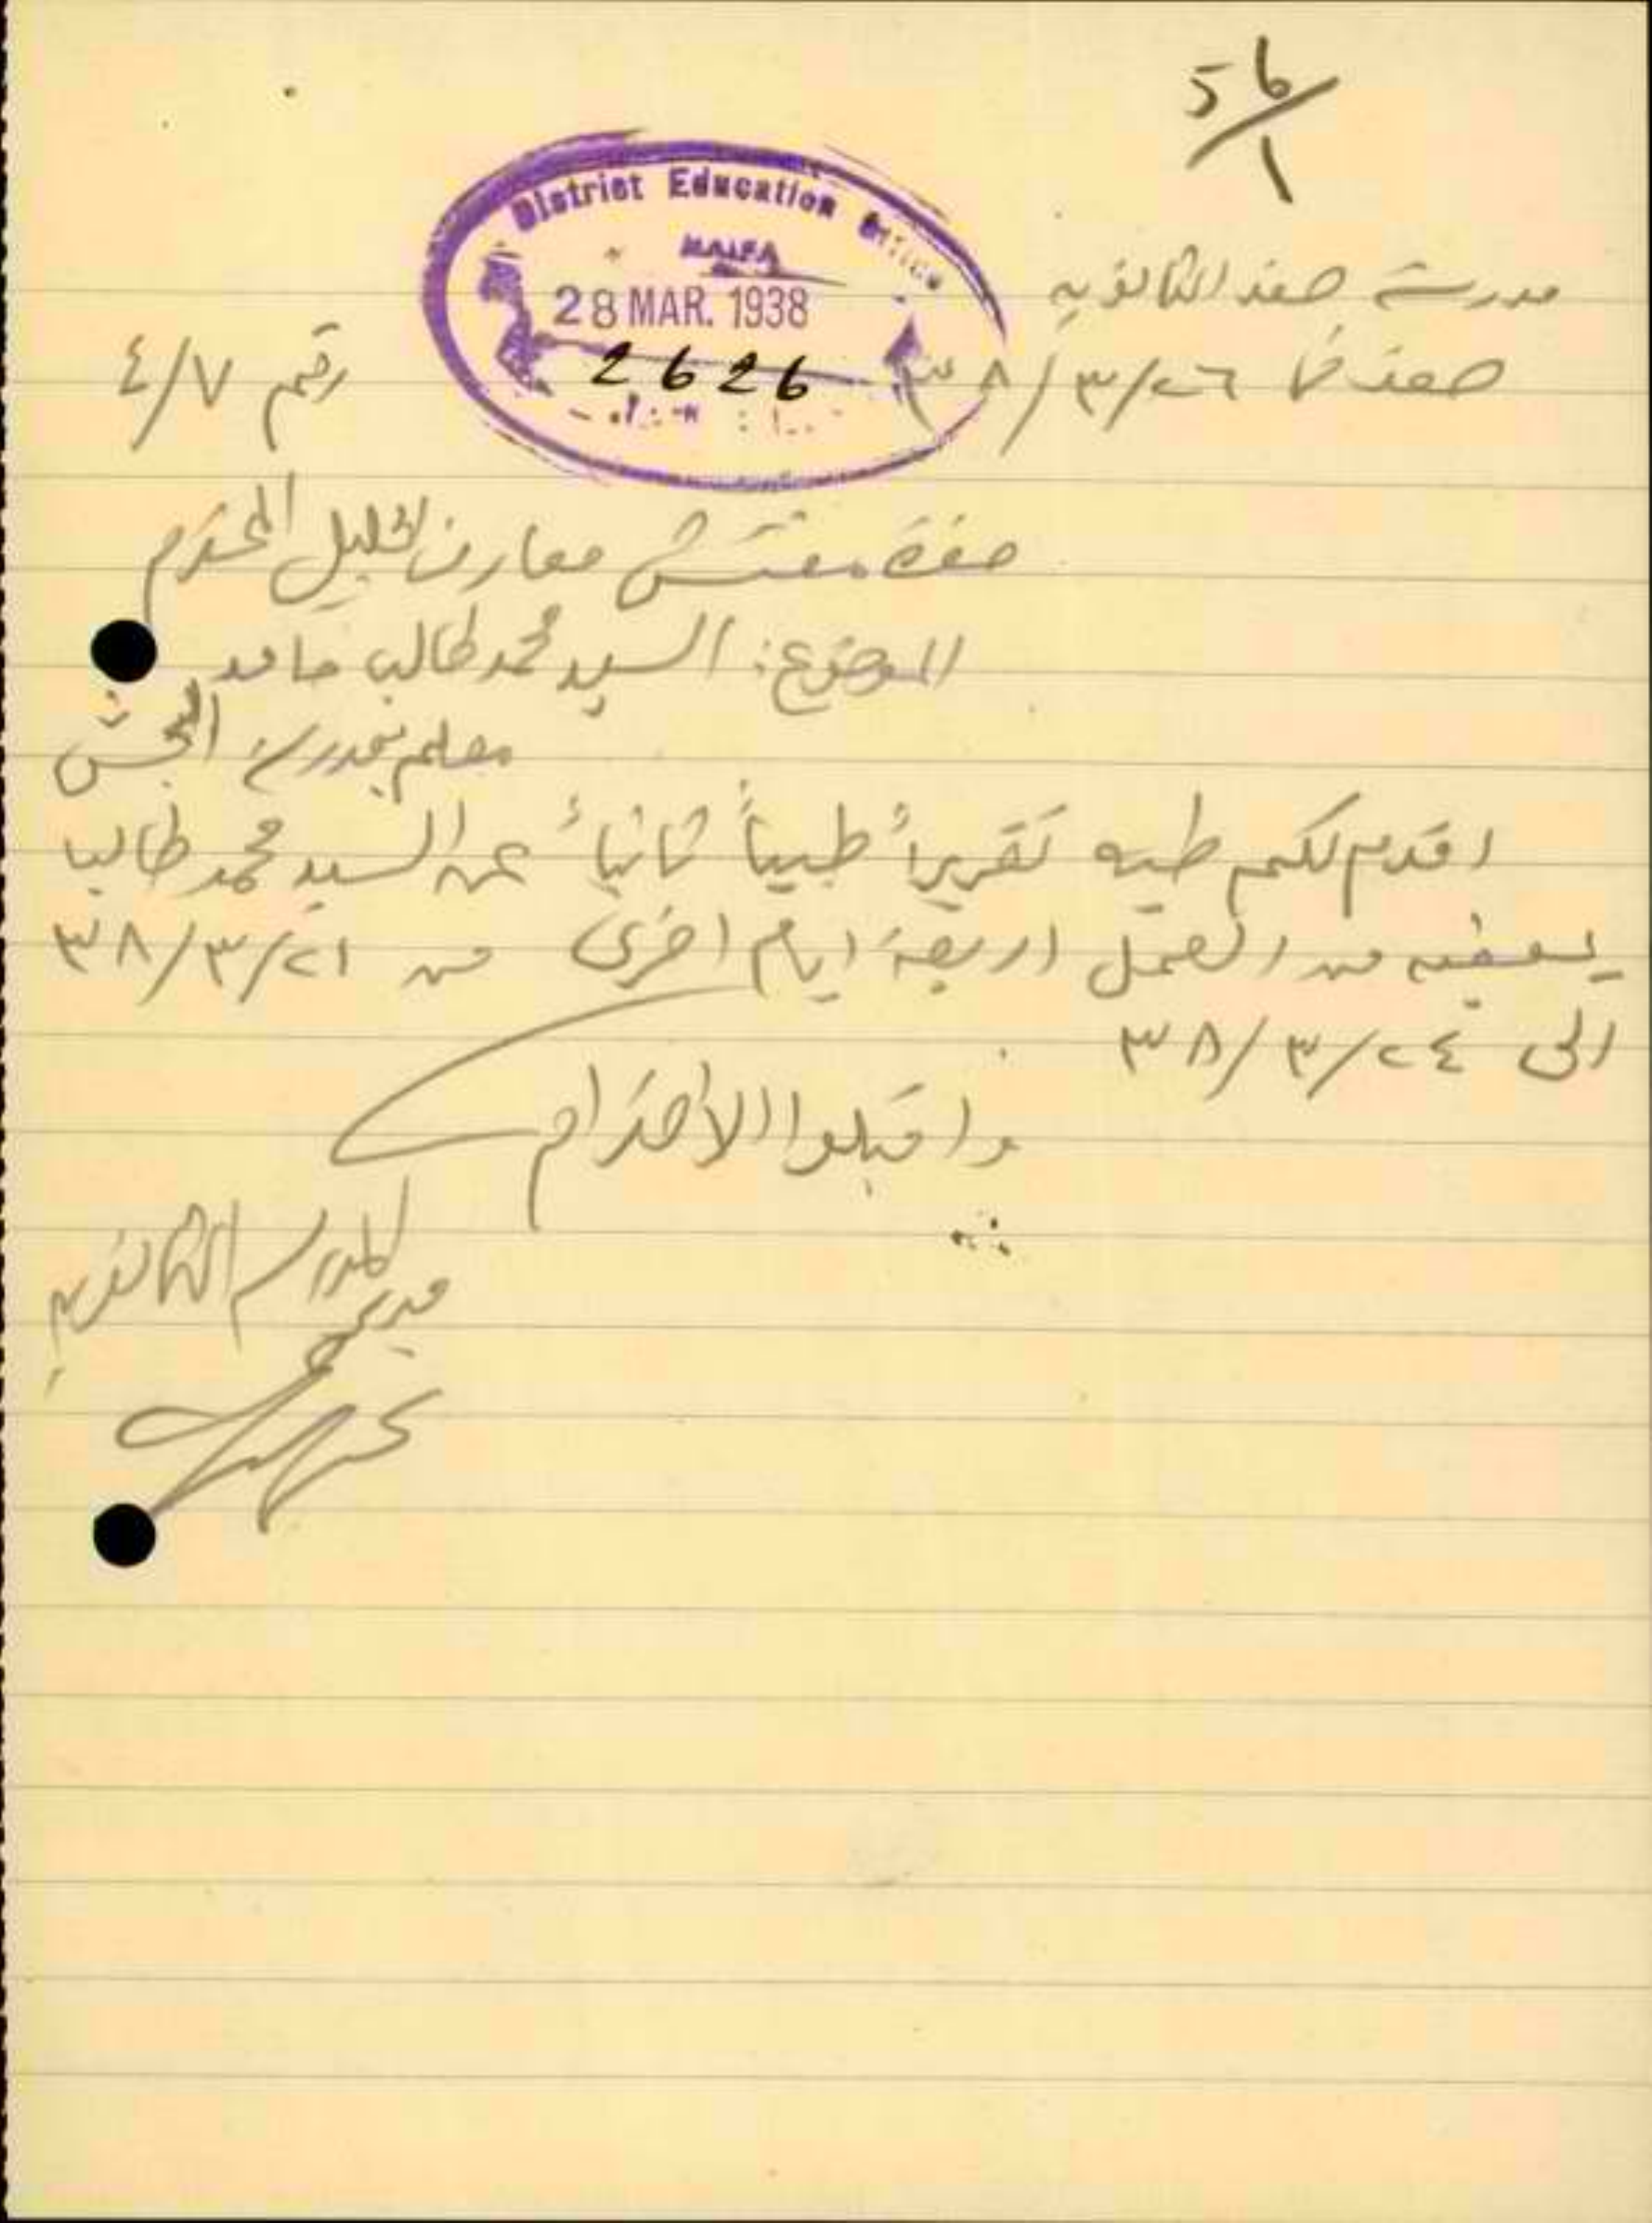 56/1
District Education Office
HAIFA
28 MAR. 1938
2626
مدرسة صفد الثانويه
صفد في ٢٦/٣/٣٨
رقم ٤/٧
حضرة مفتش معارف الجليل المحترم
الموضوع: السيد محمد طالب حامد
معلم بمدرسة الجش
اقدم لكم طيه تقريراً طبياً ثانياً عن السيد محمد طالب
يعفيه من العمل اربعة ايام اخرى من ٢١/٣/٣٨
الى ٢٤/٣/٣٨
واقبلوا الاحترام
مدير المدرسة الثانويه